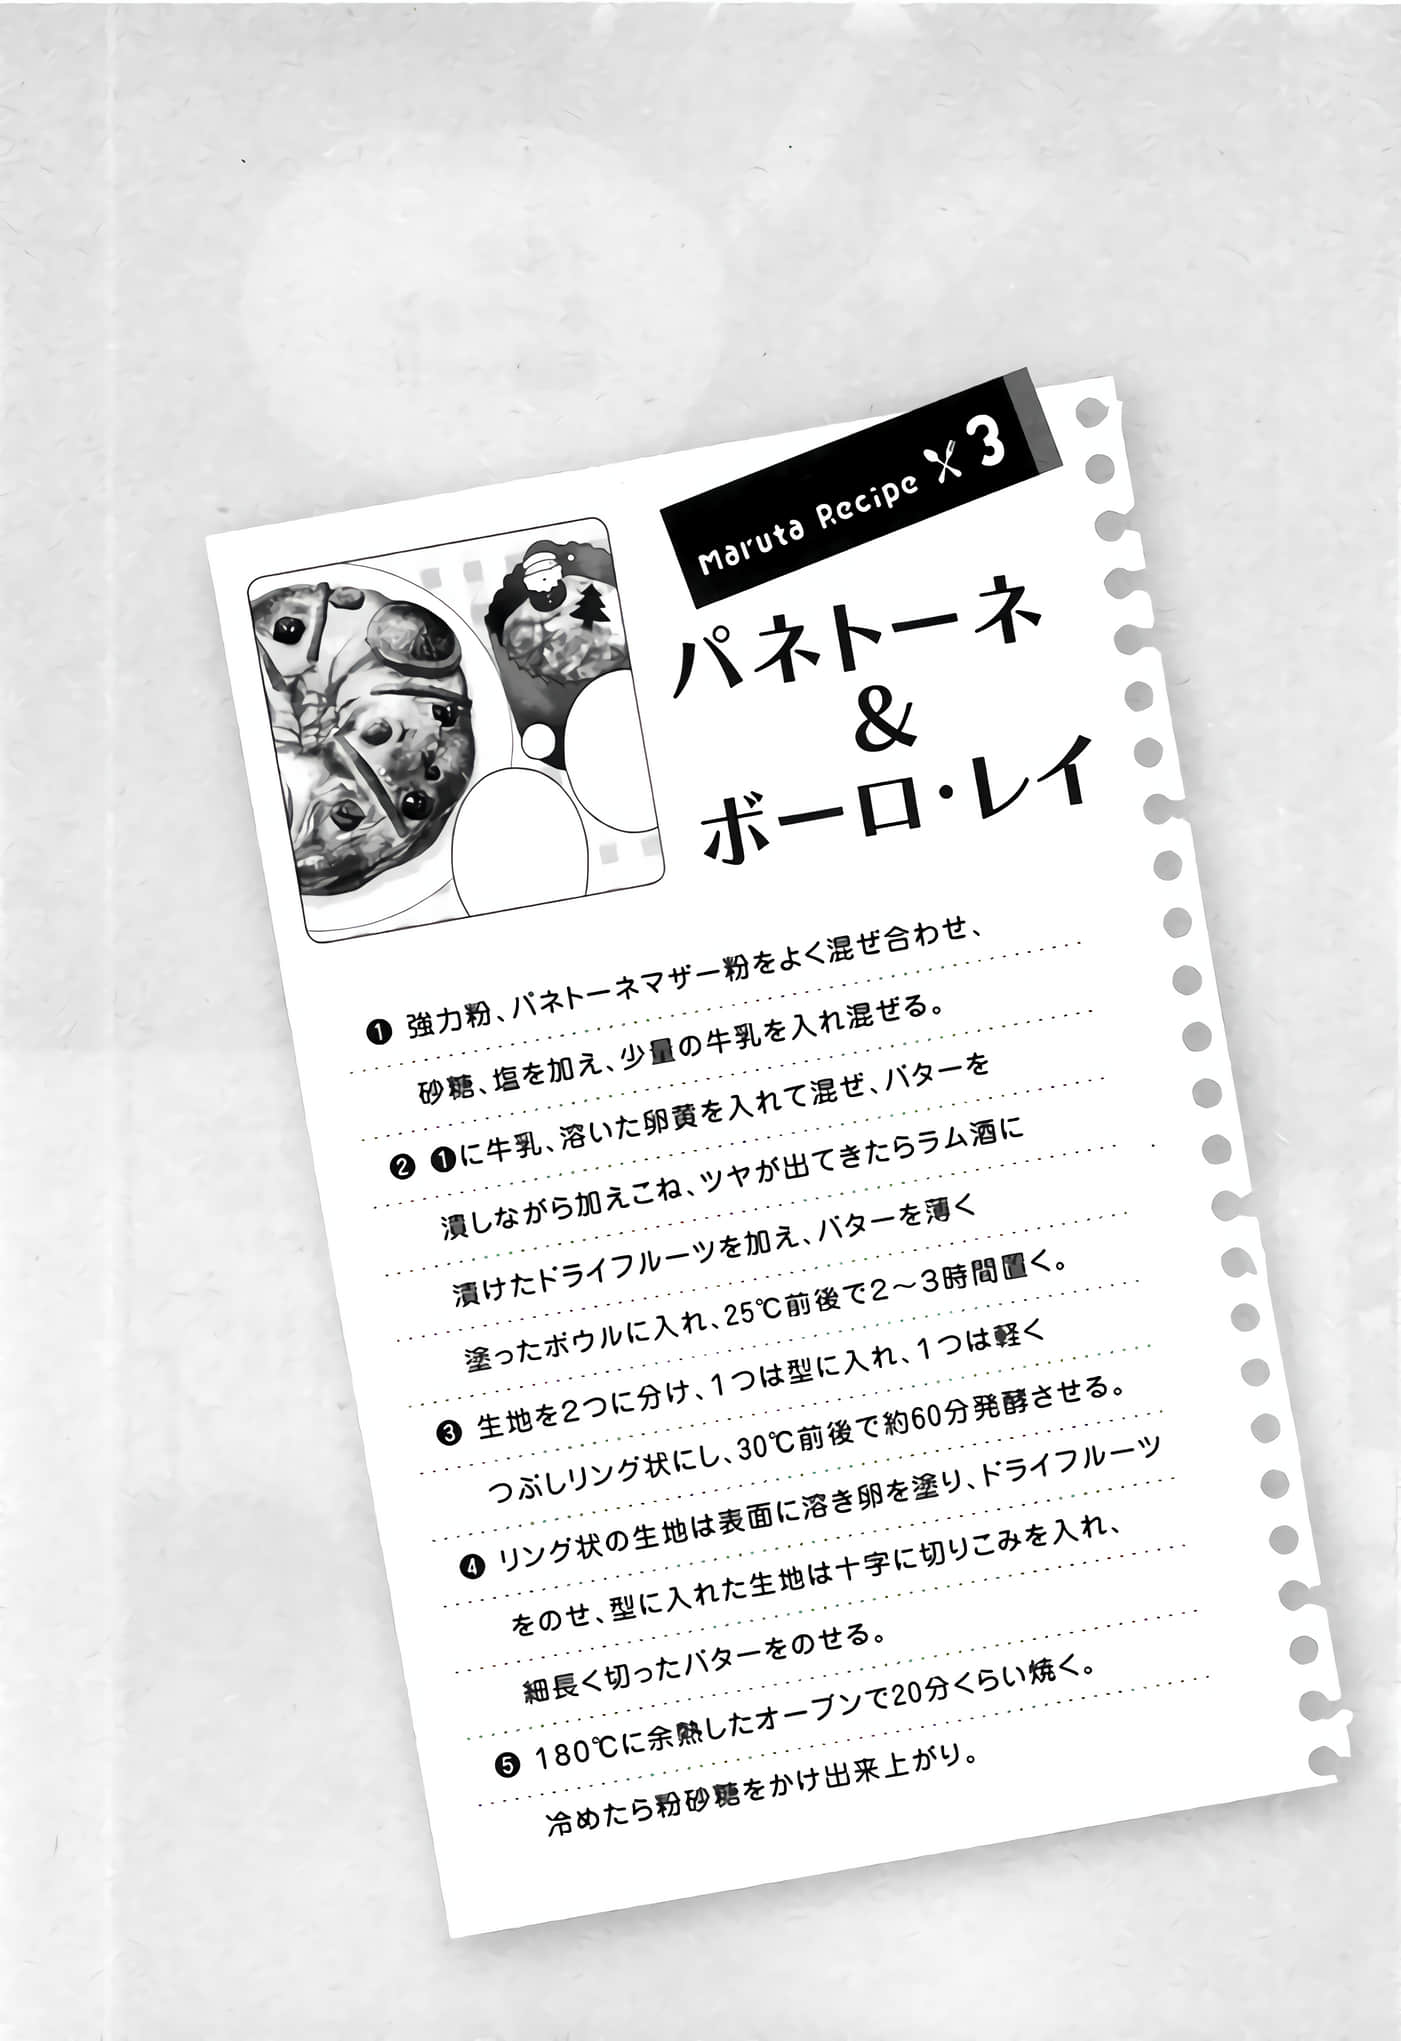 Maruta Recipe 3
パネトーネ
&
ボーロ・レイ
❶ 強力粉、パネトーネマザー粉をよく混ぜ合わせ、
砂糖、塩を加え、少量の牛乳を入れ混ぜる。
❷ ❶に牛乳、溶いた卵黄を入れて混ぜ、バターを
潰しながら加えこね、ツヤが出てきたらラム酒に
漬けたドライフルーツを加え、バターを薄く
塗ったボウルに入れ、25℃前後で2〜3時間置く。
❸ 生地を2つに分け、1つは型に入れ、1つは軽く
つぶしリング状にし、30℃前後で約60分発酵させる。
❹ リング状の生地は表面に溶き卵を塗り、ドライフルーツ
をのせ、型に入れた生地は十字に切りこみを入れ、
細長く切ったバターをのせる。
❺ 180℃に余熱したオーブンで20分くらい焼く。
冷めたら粉砂糖をかけ出来上がり。